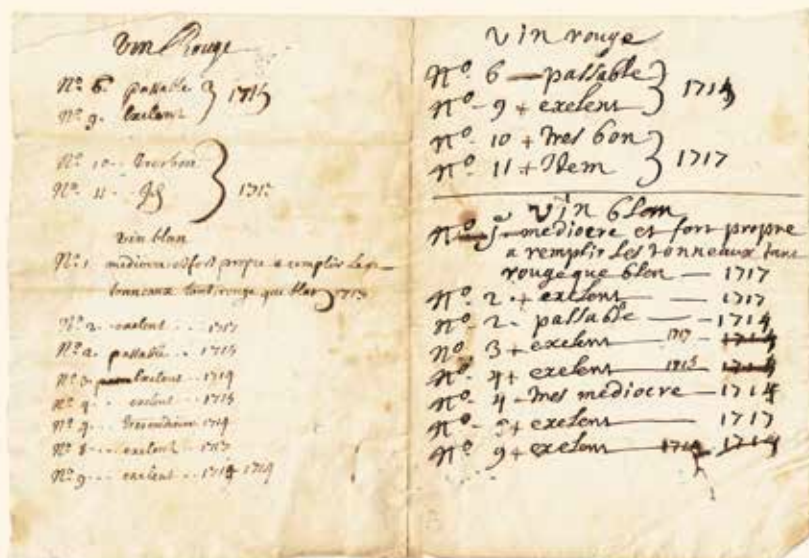 Vin Rouge
No. 6. passable
No. 9. Exelent } 1715
No. 10.. Tresbon
No. 11..
vin blan
No. 1 mediocre et fort propre a remplir les
tonneaux tant rouge que blan
No. 2.. exelent .. 1717
No. 2.. passable ..
No. 3. Exelent .. 1719
No. 4.. exelent .. 1715
No. 4..
No. 5.. exelent .. 1717
No. 9.. exelent .. 1714 1719
vin rouge
No 6 — passable
No - 9 + exelens }
No - 10 + tres bon
No 11 + Item } 1717
vin blem
mediocre et fort propre
a remplir Les tonneaux tans
rouge que blen — 1717
No - 2 + exelens — 1717
No - 2 - passable — 1714
No 3 + exelens — 1717
No - 4 + exelens 1715
No 4 - tres mediocre — 1714
No - 5 + exelens — 1717
No 9 + exelens 1714